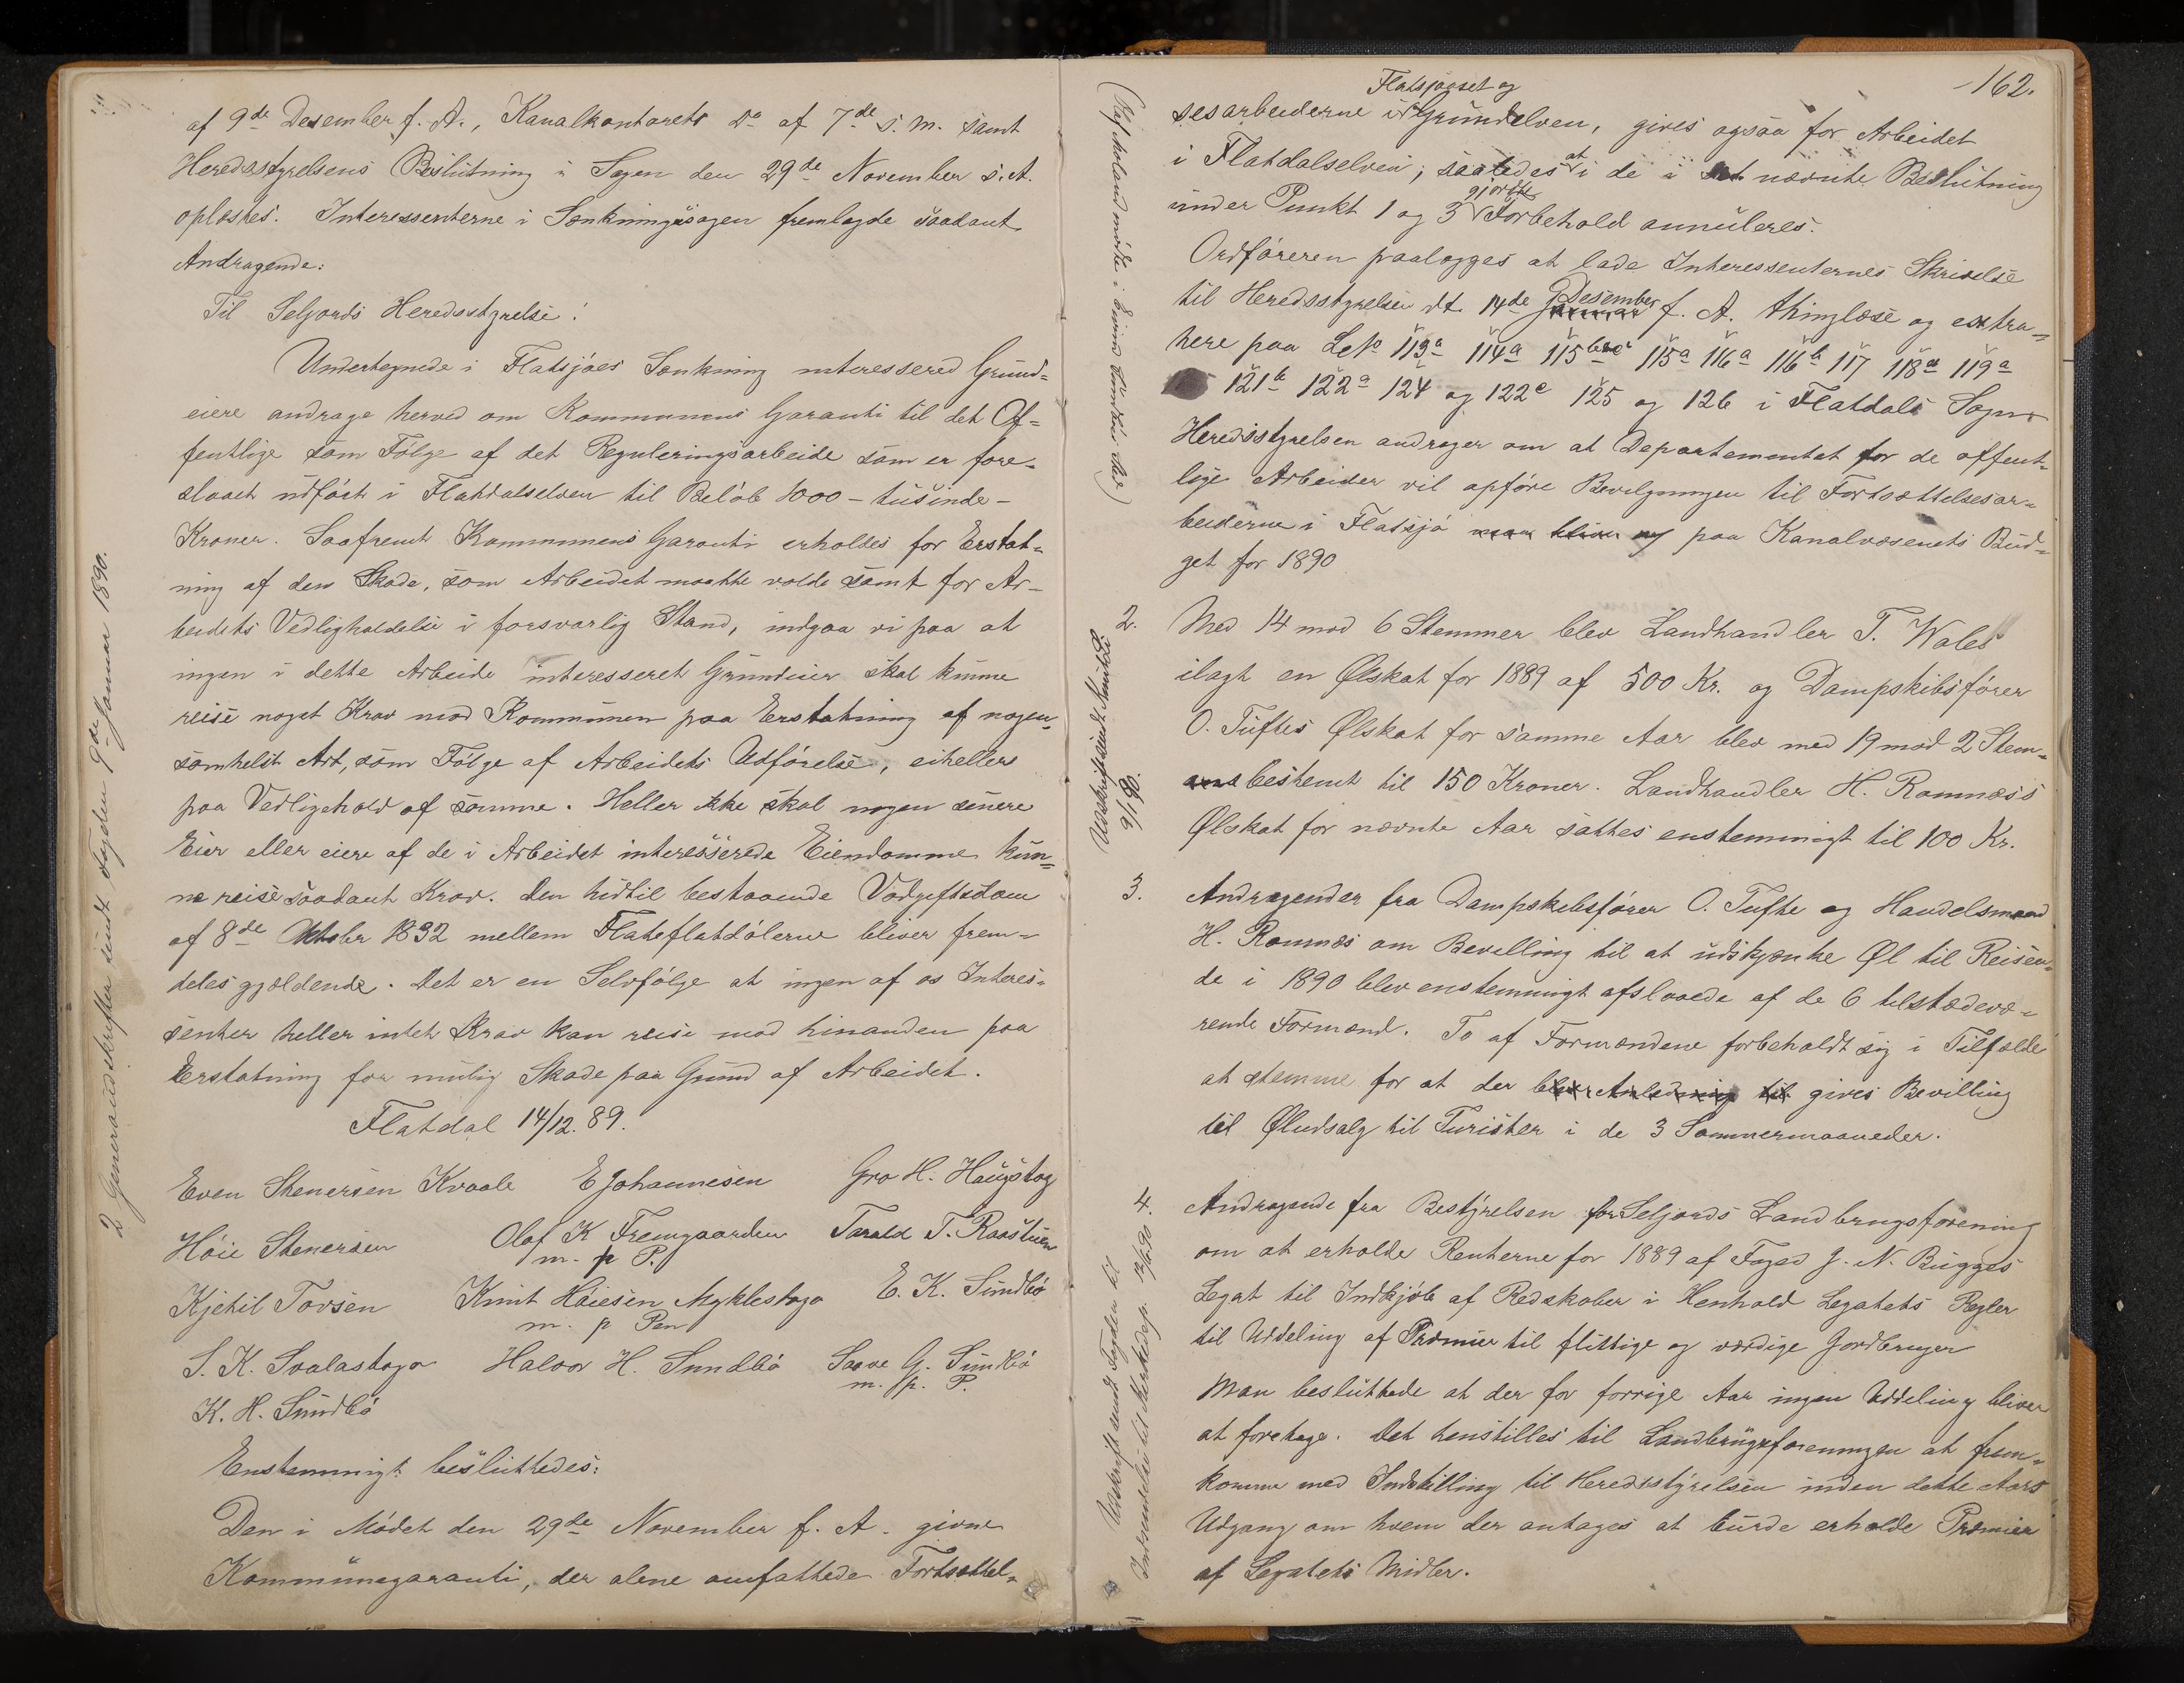 af 9de Desember f. A., Kanalkontorets Do af 7de s. m. samt
Heredsstyrelsens Beslutning i Sagen den 29de November s. A.
oplæstes. Interessenterne i Sænkningssagen fremlagde saadant
Andragende:
Til Seljords Heredsstyrelse!
Undertegnede i Flatsjøes Sænkning interessered Grund-
eiere andrage herved om Kommunens Garanti til det Of-
fentlige som Følge af det Reguleringsarbeide som er fore-
slaaet udført i Flatdalselven til Beløb 1000 - tusinde -
Kroner. Saafremt Kommunens Garanti erholdes for Erstat-
ning af den Skade, som Arbeidet maatte volde samt for Ar-
beidets Vedligholdelse i forsvarlig Stand, indgaa vi paa at
ingen i dette Arbeide interesseret Grundeier skal kunne
reise noget Krav mod Kommunen paa Erstatning af nogen-
somhelst Art, som Følge af Arbeidets Udførelse, eiheller
paa Vedligehold af samme. Heller ikke skal nogen senere
Eier eller eiere af de i Arbeidet interesserede Eiendomme kun-
ne reise saadant Krav. Den hidtil bestaaende
af 8de Oktober 1832 mellem Flateflatdølerne bliver frem-
deles gjældende. Det er en Selvfølge at ingen af os Interes-
senter heller intet Krav kan reise mod hinanden paa
Erstatning for mulig Skade paa Grund af Arbeidet.
Flatdal 14/12. 89.
Even Stenersen Kvaale E Johannesen Gro H. Haugstog
Høie Stenersen Olaf K Fremgaarden Tarald T. Raastuen
m. p P.
Kjetil Tovsen Knut Høiesen Myklestoga E. K. Sundbø
m. p Pen
S. K. Svalastoga Halvor H. Sundbø Saave G. Sundbø
m. p. P.
K. H. Sundbø
Enstemmigt besluttedes:
Den i Mødet den 29de November f. A. givne
Kommunegaranti, der alene omfattede Fortsættel-
2 Generandskrifter sendt Fogden 9de Januar 1890.
162.
Flatsjøoset og
sesarbeiderne i Grundelven, gives ogsaa for Arbeidet
i Flatdalselven; saaledes at i de i nævnte Beslutning
gjorte
under Punkt 1 og 3 Forbehold annuleres.
Ordføreren paalægges at lade Interessenternes Skrivelse
til Heredsstyrelsen dt. 14de Desember f. A. thinglæse og extra-
here paa LNo 113a 114a 115 115a 116a 116b 117 118a 119a
121b 122a 124 og 122c 125 og 126 i Flatdals Sogn
Heredsstyrelsen andrager om at Departementet for de offent-
lige Arbeider vil opføre Bevilgningen til Fortsættelsesar-
beiderne i Flatsjø paa Kanalvæsenets Bud-
get for 1890
2. Med 14 mod 6 Stemmer blev Landhandler T. Wales
ilagt en Ølskat for 1889 af 500 Kr. og Dampskibsfører
O. Tuftes Ølskat for samme Aar blev med 19 mod 2 Stem-
bestemt til 150 Kroner. Landhandler H. Ramnæss
Ølskat for nævnte Aar sattes enstemmigt til 100 Kr.
Udskrift sendt
9/1 90.
3. Andragender fra Dampskibsfører O. Tufte og Handelsmand
H. Ramnæs om Bevilling til at udskjænke Øl til Reisen-
de i 1890 blev enstemmigt afslaaede af de 6 tilstædevæ-
rende Formænd. To af Formændene forbeholdt sig i Tilfælde
at stemme for at der gives Bevilling
til Øludsalg til Turister i de 3 Sommermaaneder.
4. Andragende fra Bestyrelsen for Seljords Landbrugsforening
om at erholde Renterne for 1889 af Foged J. N. Bugges
Legat til Indkjøb af Redskaber i Henhold Legatets Regler
til Uddeling af Præmier til flittige og værdige Jordbruger
Man besluttede at der for forrige Aar ingen Uddeling bliver
at foretage. Det henstilles til Landbrugsforeningen at frem-
komme med Indstilling til Heredsstyrelsen inden dette Aars
Udgang om hvem der antages at burde erholde Præmier
af Legatets Midler.
Udskrift sendt Fogden til
Indsendelse til Kirkedep.